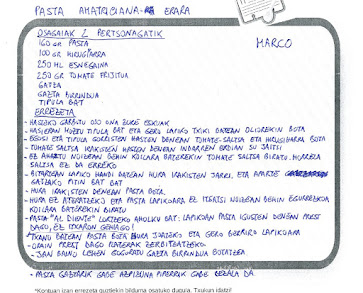 PASTA AMATRICIANA-RA ERARA
OSAGAIAK 2 PERTSONAGATIK
MARCO
160 GR PASTA
100 GR HIRUGIHARRA
250 ML ESNEGAINA
250 GR TOMATE FRIJITUA
GATZA
GAZTA BIRRINDUA
TIPULA BAT
ERREZETA
- HASIEKO GARBITU OSO ONA ZURE ESKUAK
- HASIERAN MOZTU TIPULA BAT ETA GERO LAPIKO TXIKI BATEAN OLIOREKIN BOTA
- EGOSI ETA TIPULA GORRISTEN HASTEN DENEAN TOMATE-SALTSA ETA HIRUGIHARRA BOTA
- TOMATE SALTSA IRAKISTEN HASTEN DENEAN INDARREN ERDIAN SU JAITSI
- EZ AHAZTU NOIZEAN BEHIN KOILARA BATEREKIN TOMATE SALTSA BIRATU. HORRELA
SALTSA EZ DA ERREKO
- BITARTEAN LAPIKO HANDI BATEAN HURA IRAKISTEN JARRI, ETA
GATZAKO PITIN BAT BAT
- HURA IRAKISTEN DENEAN PASTA BOTA.
- HURA EZ ATERATZEKO ETA PASTA LAPIKOARA EZ ITSATSI NOIZEAN BEHIN EGURREZKOA
KOILARA BATEREKIN BIRATU
- PASTA "AL DIENTE" LORTZEKO AHOLKU BAT: LAPIKOAN PASTA IGUSTEN DENEAN PREST
DAGO, EZ ITXARON GEHIAGO!
- TXANO BATEAN PASTA BOTA HURA JOATEKO ETA GERO BERRIRO LAPIKOARA
- ORAIN PREST DAGO PLATERAK ZERBITZATZEKO.
- JAN BAINO LEHEN GOGORATU GAZTA BIRRINDUA BOTATZEA
- PASTA GAZTARIK GABE AFIZIUNA PIPERRIK GABE BEZALA DA.
*Kontuan izan errezeta guztiekin bilduma osatuko dugula. Txukun idatzi!